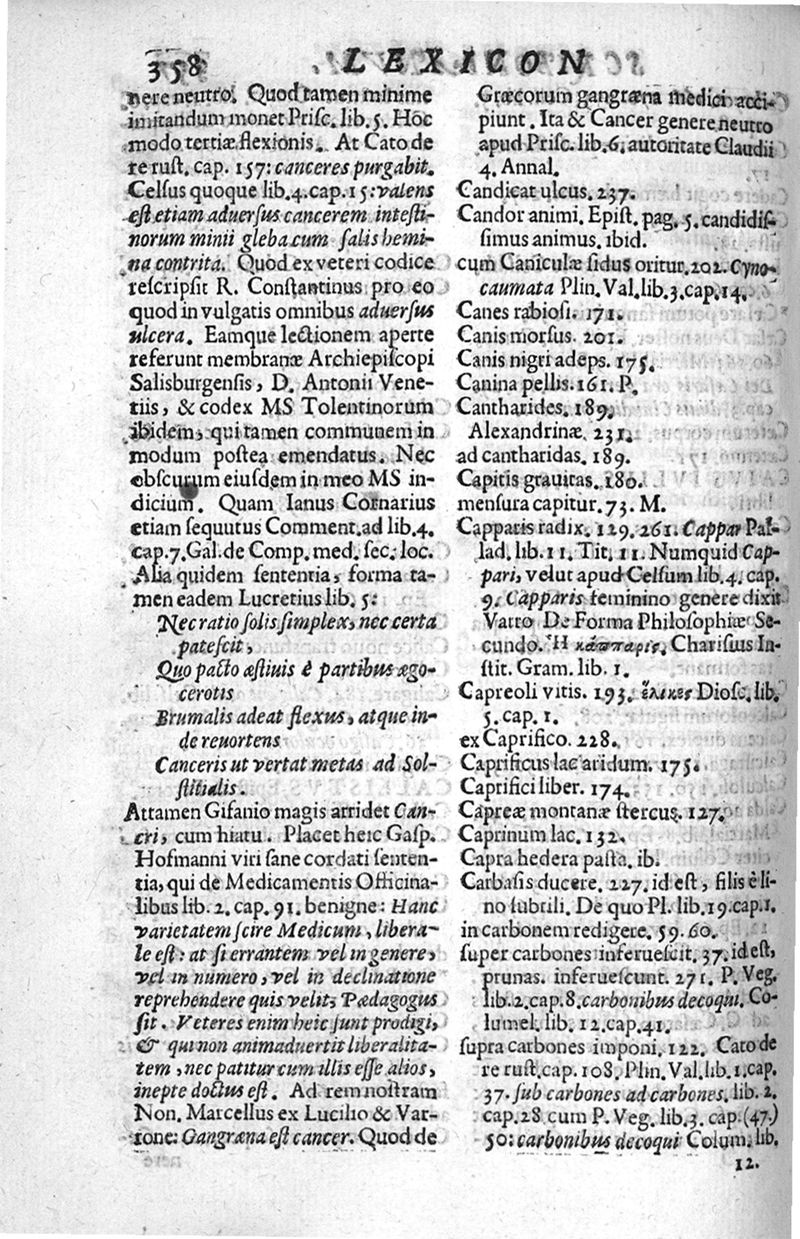 358 LEXICON
nere neutro. Quod tamen minime
imitandum monet Priſc. lib. 5. Hoc
modo tertiæ flexionis. At Cato de
re ruſt. cap. 157: canceres purgabit.
Celſus quoque lib. 4. cap. 15: valens
eſt etiam aduerſus cancerem inteſti-
norum minii gleba cum ſalis hemi-
na contrita. Quod ex veteri codice
reſcripſit R. Conſtantinus pro eo
quod in vulgatis omnibus aduerſus
ulcera. Eamque lectionem aperte
referunt membranæ Archiepiſcopi
Salisburgenſis, D. Antonii Vene-
tiis, & codex MS Tolentinorum
ibidem, qui tamen communem in
modum poſtea emendatus. Nec
obſcurum eiuſdem in meo MS in-
dicium. Quam Ianus Cornarius
etiam ſequutus Comment. ad lib. 4.
cap. 7. Gal. de Comp. med. ſec. loc.
Alia quidem ſententia, forma ta-
men eadem Lucretius lib. 5:
Nec ratio ſolis ſimplex, nec certa
pateſcit,
Quo pacto æſtiuis è partibus ægo-
cerotis
Brumalis adeat flexus, atque in-
de reuortens
Canceris ut vertat metas ad Sol-
ſtitialis.
Attamen Gifanio magis arridet Can-
cri, cum hiatu. Placet heic Gaſp.
Hofmanni viri ſane cordati ſenten-
tia, qui de Medicamentis Officina-
libus lib. 2. cap. 91. benigne: Hanc
varietatem ſcire Medicum, libera-
le eſt: at ſi errantem vel in genere,
vel in numero, vel in declinatione
reprehendere quis velit, Pædagogus
ſit. Veteres enim heic ſunt prodigi,
& qui non animaduertit liberalita-
tem, nec patitur cum illis eſſe alios,
inepte doctus eſt. Ad rem noſtram
Non. Marcellus ex Lucilio & Var-
rone: Gangræna eſt cancer. Quod de
Græcorum gangræna medici acci-
piunt. Ita & Cancer genere neutro
apud Priſc. lib. 6. autoritate Claudii
4. Annal.
Candicat ulcus. 237.
Candor animi. Epiſt. pag. 5. candidiſ-
ſimus animus. ibid.
cum Caniculæ ſidus oritur. 202. Cyno-
caumata Plin. Val. lib. 3. cap. 14.
Canes rabioſi. 171.
Canis morſus. 201.
Canis nigri adeps. 175.
Canina pellis. 161. P.
Cantharides. 189.
Alexandrinæ. 231.
ad cantharidas. 189.
Capitis grauitas. 180.
menſura capitur. 73. M.
Capparis radix. 129. 261. Cappar Pal-
lad. lib. 11. Tit. 11. Numquid Cap-
pari, velut apud Celſum lib. 4. cap.
9. Capparis feminino genere dixit
Varro De Forma Philoſophiæ Se-
cundo. Ἡ κάππαρις. Chariſius In-
ſtit. Gram. lib. 1.
Capreoli vitis. 193. ἕλικες Dioſc. lib.
5. cap. 1.
ex Caprifico. 228.
Caprificus lac aridum. 175.
Caprifici liber. 174.
Capreæ montanæ ſtercus. 127.
Caprinum lac. 132.
Capra hedera paſta. ib.
Carbaſis ducere. 227. id eſt, filis è li-
no ſubtili. De quo Pl. lib. 19. cap. 1.
in carbonem redigere. 59. 60.
ſuper carbones inferueſcit. 37. id eſt,
prunas. inferueſcunt. 271. P. Veg.
lib. 2. cap. 8. carbonibus decoqui. Co-
lumel. lib. 12. cap. 41.
ſupra carbones imponi. 122. Cato de
re ruſt. cap. 108. Plin. Val. lib. 1. cap.
37. ſub carbones ad carbones. lib. 2.
cap. 28 cum P. Veg. lib. 3. cap. (47.)
50: carbonibus decoqui Colum. lib.
12.